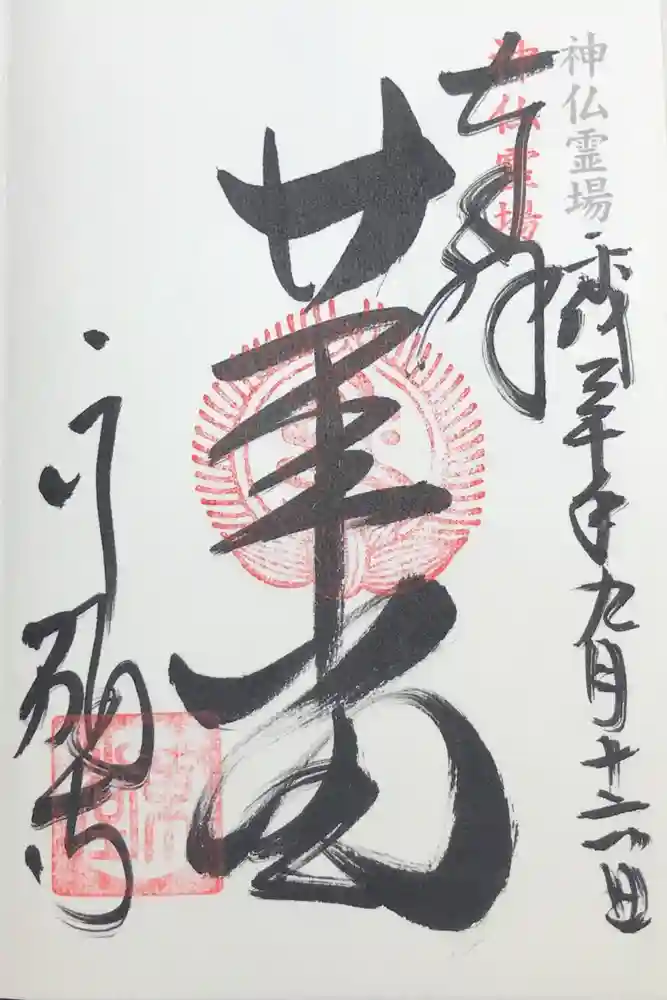 神仏霊場
平成三十年九月十六日
神仏霊場
奉拝
革堂
行願寺